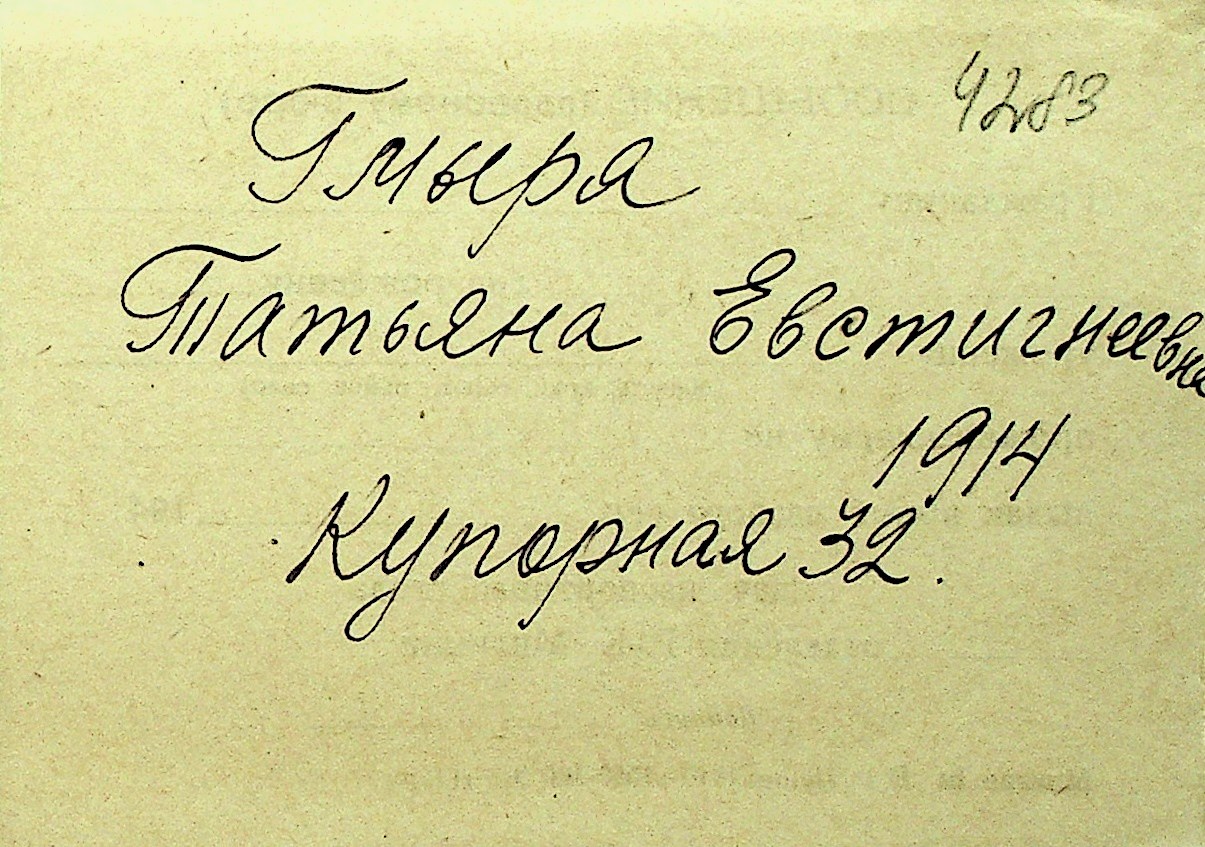 4283
Гмыря
Татьяна Евстигнеевна
1914
Купорная 32.